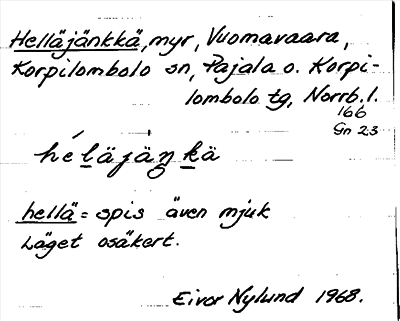 Helläjänkkä, myr, Vuomavaara,
Korpilombolo sn, Pajala o. Korpi-
lombolo tg, Norrb. l.
166
Gn 23
héläjáŋkä
hellä = spis även mjuk
Läget osäkert.
Eivor Nylund 1968.